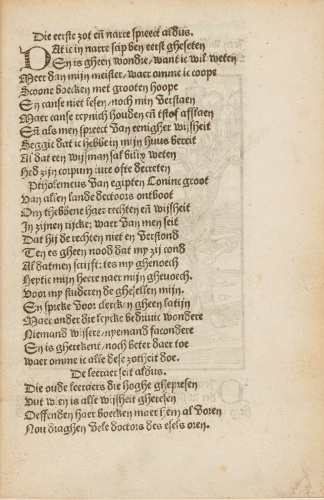 Die eerste zot eñ narre spreect aldus.
DAt ic in narre sap ben eerst gheseten
En is gheen wondre, want ic wil weten
Meer dan mijn meister, waer omme ic coope
Scoone boecken met grooten hoope
En canse niet lesen, noch min verstaen
Maer canse reynich houden eñ tstof afslaen
Eñ als men spreect van eenigher wijsheit
Segghe dat ic hebbe in mijn huus bereit
Al dat een wijsman sal weten
Hed zijn corpum iure ofte decreten
Ptholomeus van egipten Coninc groot
Van allen lande doctoors ontboot
Om thebbene haer rechten eñ wijsheit
In zijnen rijcke, waer van men seit
Dat hij de rechten niet en verstond
Ten es gheen nood dat my zij cond
Al datmen scrijft: tes my ghenoech
Heytic mijn heere naer mijn ghevoech.
Voor my studeren de ghesellen mijn.
En spreke voor clercken gheen latijn
Maer onder die leycke bedrivic wondere
Niemand wijsere, nyemand facondere
En is gherekent, noch beter daer toe
Waer omme ic alle dese zotheit doe.
De leeraer seit aldus.
Die oude leeraers die hoghe ghepresen
Vut wien is alle wijsheit gheresen
Oeffenden haer boecken maer hem al voren
Nou draghen vele doctors des esels oren.